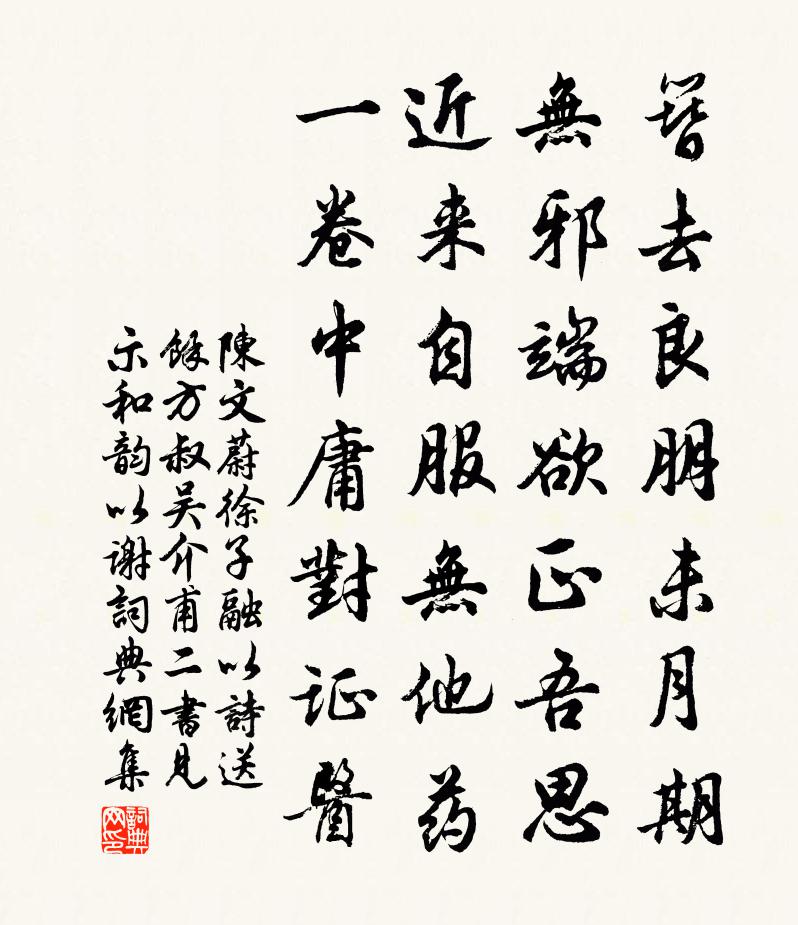 簪去良朋未月期
無邪端欲正吾思
近来自服無他药
一卷中庸對证醫
陳文蔚徐子融以詩送
餘方叔吴介甫二書見
示和韵以謝詞典網集
詞典
网印